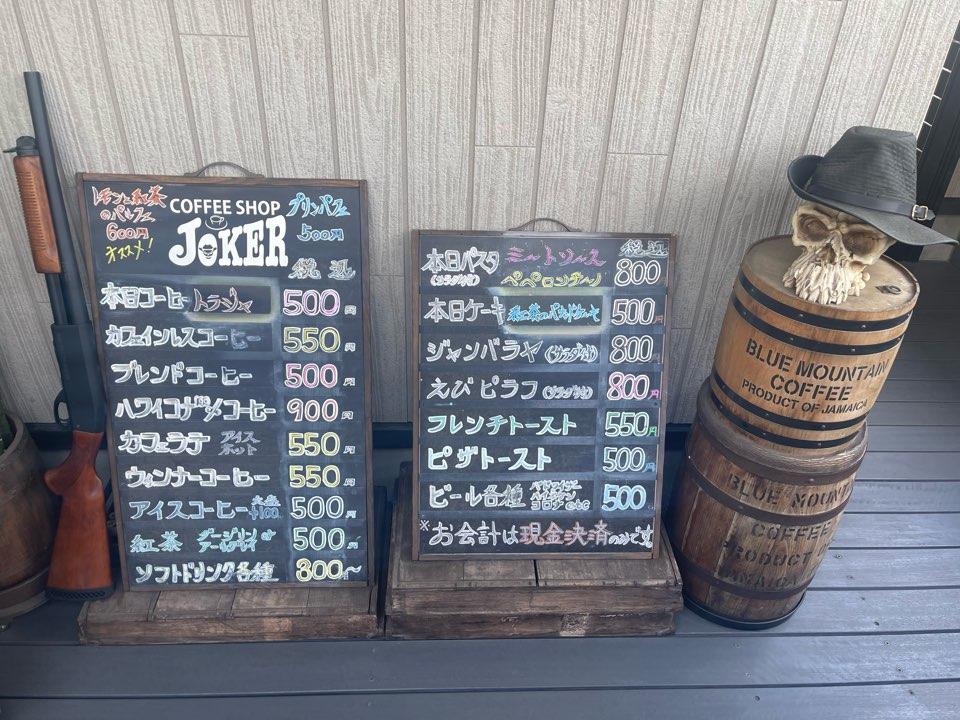 レモンと紅茶
のパルフェ
600円
オススメ!
COFFEE SHOP
JOKER
プリンパフェ
500円
税込
本日コーヒー トラジャ 500円
カフェインレスコーヒー 550円
ブレンドコーヒー 500円
ハワイコナ コーヒー 900円
カフェラテ アイス ホット 550円
ウィンナーコーヒー 550円
アイスコーヒー 500円
紅茶 500円
ソフトドリンク各種 300円~
税込
本日パスタ ミートソース
(サラダ付) ペペロンチーノ 800
本日ケーキ 紅茶のパウンドケーキ 500円
ジャンバラヤ (サラダ付) 800円
えびピラフ (サラダ付) 800円
フレンチトースト 550円
ピザトースト 500円
ビール各種 コロナ etc 500
※お会計は現金決済のみです
BLUE MOUNTAIN
COFFEE
PRODUCT OF JAMAICA
BLUE MOUNT
COFFEE
PRODUCT OF
JAMAICA